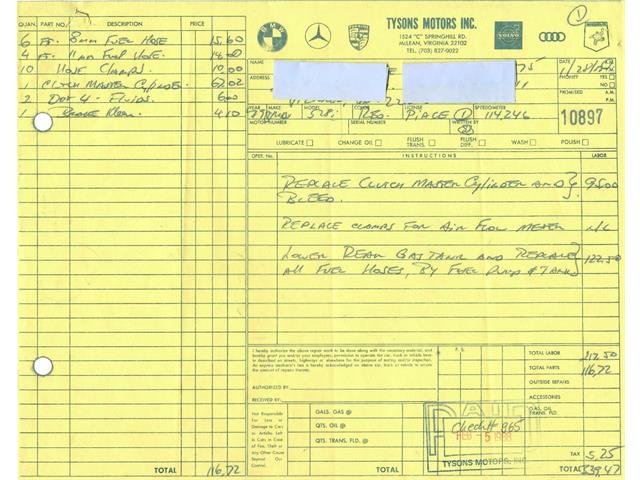 QUAN. PART NO. DESCRIPTION PRICE
6 FT. 8mm FUEL HOSE 15.60
4 FT. 11mm FUEL HOSE 14.00
10 HOSE CLAMPS 10.00
1 CLUTCH MASTER CYLINDER 67.02
2 DOT 4 - FLUIDS 6.00
1 BRAKE KLEEN 4.10
TOTAL 116,72
BMW
TYSONS MOTORS INC.
1524 "C" SPRINGHILL RD.
McLEAN, VIRGINIA 22102
TEL. (703) 827-0022
VOLVO
1
NAME
ADDRESS
PHONED YES NO
PROMISED A.M. P.M.
YEAR MAKE MODEL COLOR LICENSE SPEEDOMETER
528i RED 114,246
MOTOR NUMBER SERIAL NUMBER WRITTEN BY
10897
LUBRICATE CHANGE OIL FLUSH TRANS. FLUSH DIFF. WASH POLISH
OPER. No. INSTRUCTIONS LABOR
REPLACE CLUTCH MASTER CYLINDER AND 95.00
BLEED.
REPLACE CLAMPS FOR AIR FLOW METER N/C
LOWER REAR GAS TANK AND REPLACE 122.50
ALL FUEL HOSES, BY FUEL PUMP & TANK
I hereby authorize the above repair work to be done along with the necessary material, and
hereby grant you and/or your employees, permission to operate the car, truck or vehicle here
in described on streets, highways or elsewhere for the purpose of testing and/or inspection.
An express mechanic's lien is hereby acknowledged on above car, truck or vehicle to secure
the amount of repairs thereto.
AUTHORIZED BY
RECEIVED BY
P.S.
Not Responsible
For Loss or
Damage to Cars
or Articles Left
in Cars in Case
of Fire, Theft or
Any Other Cause
Beyond Our
Control
GALS. GAS @
QTS. OIL @
QTS. TRANS. FLD. @
TOTAL LABOR 217.50
TOTAL PARTS 116,72
OUTSIDE REPAIRS
ACCESSORIES
GAS, OIL
TRANS. FLD.
TAX 5,25
TOTAL 339,47
PAID
Check# 865
FEB -5 1988
TYSONS MOTORS, INC.